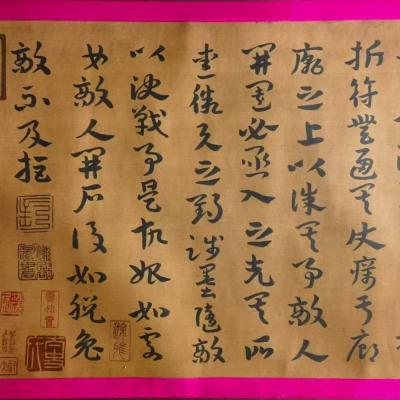 折符無通其使厲于廊
廟之上以誅其事敵人
開闔必亟入之先其所
愛微與之期踐墨隨敵
以決戰事是故始如處
女敵人開戶後如脫兔
敵不及拒